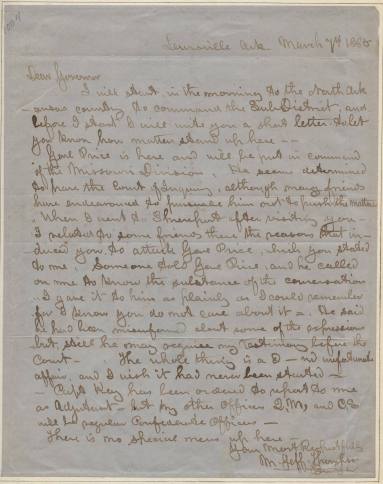 Lewisville Ark March 7th 1865
Dear Governor
I will start in the morning to the North Ark
ansas country to command the Sub District, and
before I start I will write you a short letter to let
you know how matters stand up here --
Genl Price is here and will be put in command
of the Missouri Division. He seems determined
to have the Court of Inquiry, although many friends
have endeavored to persuade him not to push the matter
When I went to Shreveport after visiting you -
I related to some friends there the reasons that in-
duced you to attack Genl Price, which you stated
to me. Someone told Genl Price, and he called
on me to know the substance of the conversation
I gave it to him as plainly as I could remember
for I know you do not care about it -. He said
he had been misinformed about some of the expressions
but still he may require my testimony before the
Court - The whole thing is a D - nd unfortunate
affair, and I wish it had never been started -
- Capt Kay has been ordered to report to me
as Adjutant - but my other Officers Q.M. and C.S.
will be regular Confederate Officers -
There is no special news up here -
Your Most Respectfully
M. Jeff Thompson